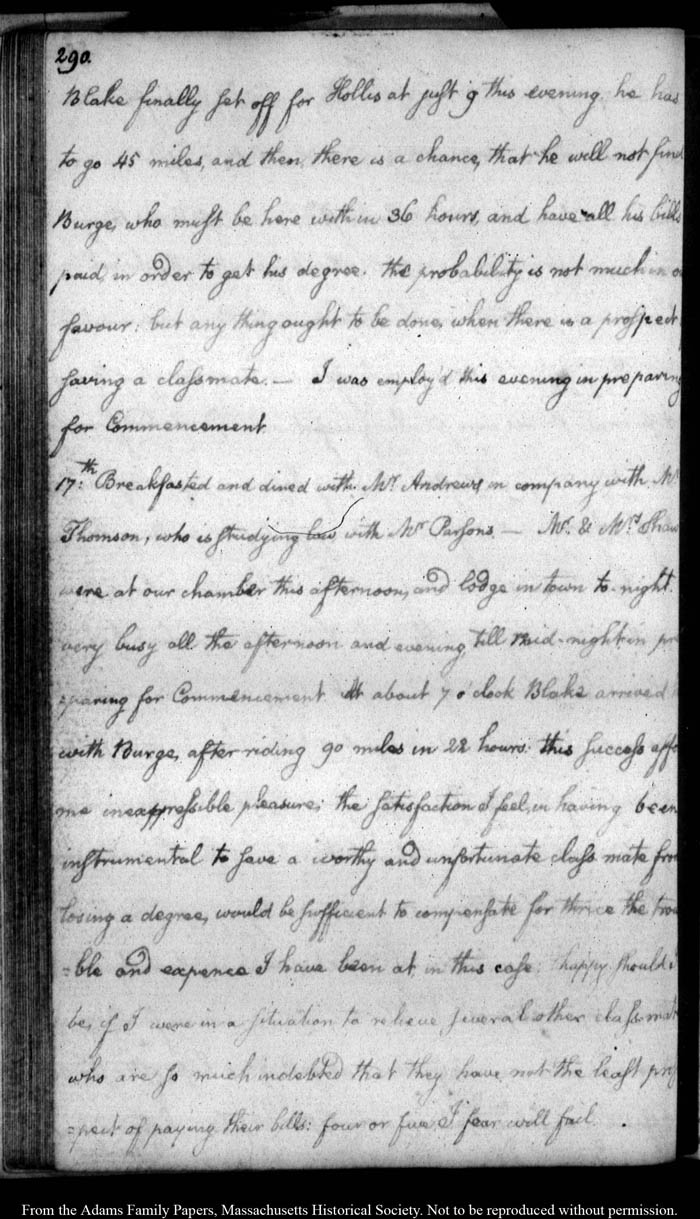 290.
Blake finally set off for Hollis at just 9 this evening. he has
to go 45 miles, and then, there is a chance, that he will not find
Burge, who must be here within 36 hours, and have all his bills
paid, in order to get his degree. the probability is not much in
favour: but any thing ought to be done, when there is a prospect
saving a classmate. — I was employ'd this evening in preparing
for Commencement
17th: Breakfasted and dined with Mr. Andrews in company with Mr
Thomson, who is studying law with Mr Parsons — Mr. & Mrs Shaw
were at our chamber this afternoon, and lodge in town to-night.
very busy all the afternoon and evening till mid-night in pre
=paring for Commencement. At about 7 o'clock Blake arrived
with Burge, after riding 90 miles in 22 hours: this success affo
me inexpressible pleasure; the satisfaction I feel, in having been
instrumental to save a worthy and unfortunate class mate from
losing a degree, would be sufficient to compensate for thrice the trou
=ble and expence I have been at, in this case: happy should I
be, if I were in a situation to relieve several other class mat
who are so much indebted that they have not the least pros
=pect of paying their bills: four or five I fear will fail.
From the Adams Family Papers, Massachusetts Historical Society. Not to be reproduced without permission.